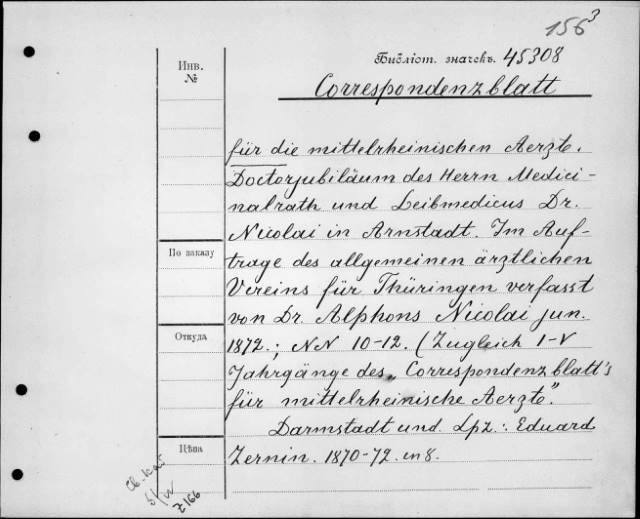 156³
Библіот. значекъ. 45308
Инв.
№
Correspondenzblatt
für die mittelrheinischen Aerzte.
Doctorjubiläum des Herrn Medici-
nalrath und Leibmedicus Dr.
Nicolai in Arnstadt. Im Auf-
trage des allgemeinen ärztlichen
По заказу
Vereins für Thüringen verfasst
von Dr. Alphons Nicolai jun.
Откуда
1872.; NN 10-12. (Zugleich I-V
Jahrgänge des „Correspondenzblatt's
für mittelrheinische Aerzte".
Darmstadt und Lpz.: Eduard
Цѣна
Zernin. 1870-72. in 8.
Z 166